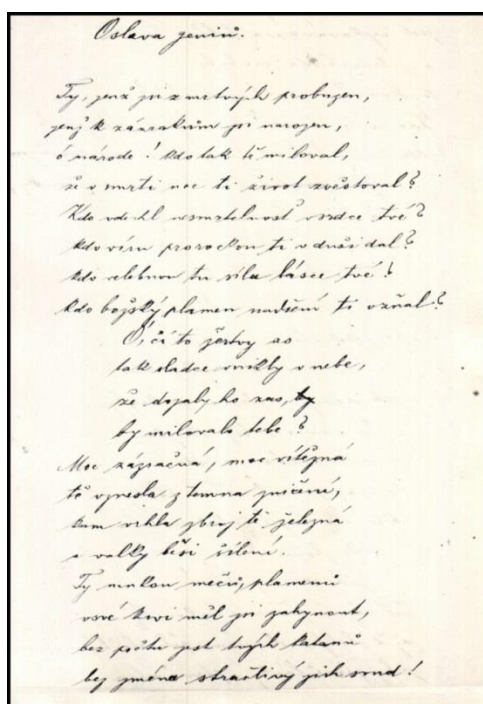 Oslava geniů.
Ty, jenž jsi z mrtvých probuzen,
jenž k zázrakům jsi narozen,
ó národe! kdo tak tě miloval,
že v smrti noc ti život zvěstoval?
Kdo vdechl nesmrtelnost v srdce tvé?
kdo věru prorockou ti v duši dal?
kdo velebnou tu sílu lásce tvé?
kdo božský plamen nadšení ti vzňal?
Ó, čí to žertvy so
tak sladce vnikly v nebe,
že dojaly ho zas, by
by milovalo tebe?
Moc zázračná, moc vítězná
tě vznesla z temna zničení,
kam vrhla zbroj tě železná
a války běsi šílení.
Ty mukou mečů, plamenů
v své krvi měl jsi zahynout,
bez počtu jest tvých katanů
bez jména strašlivý jich soud!